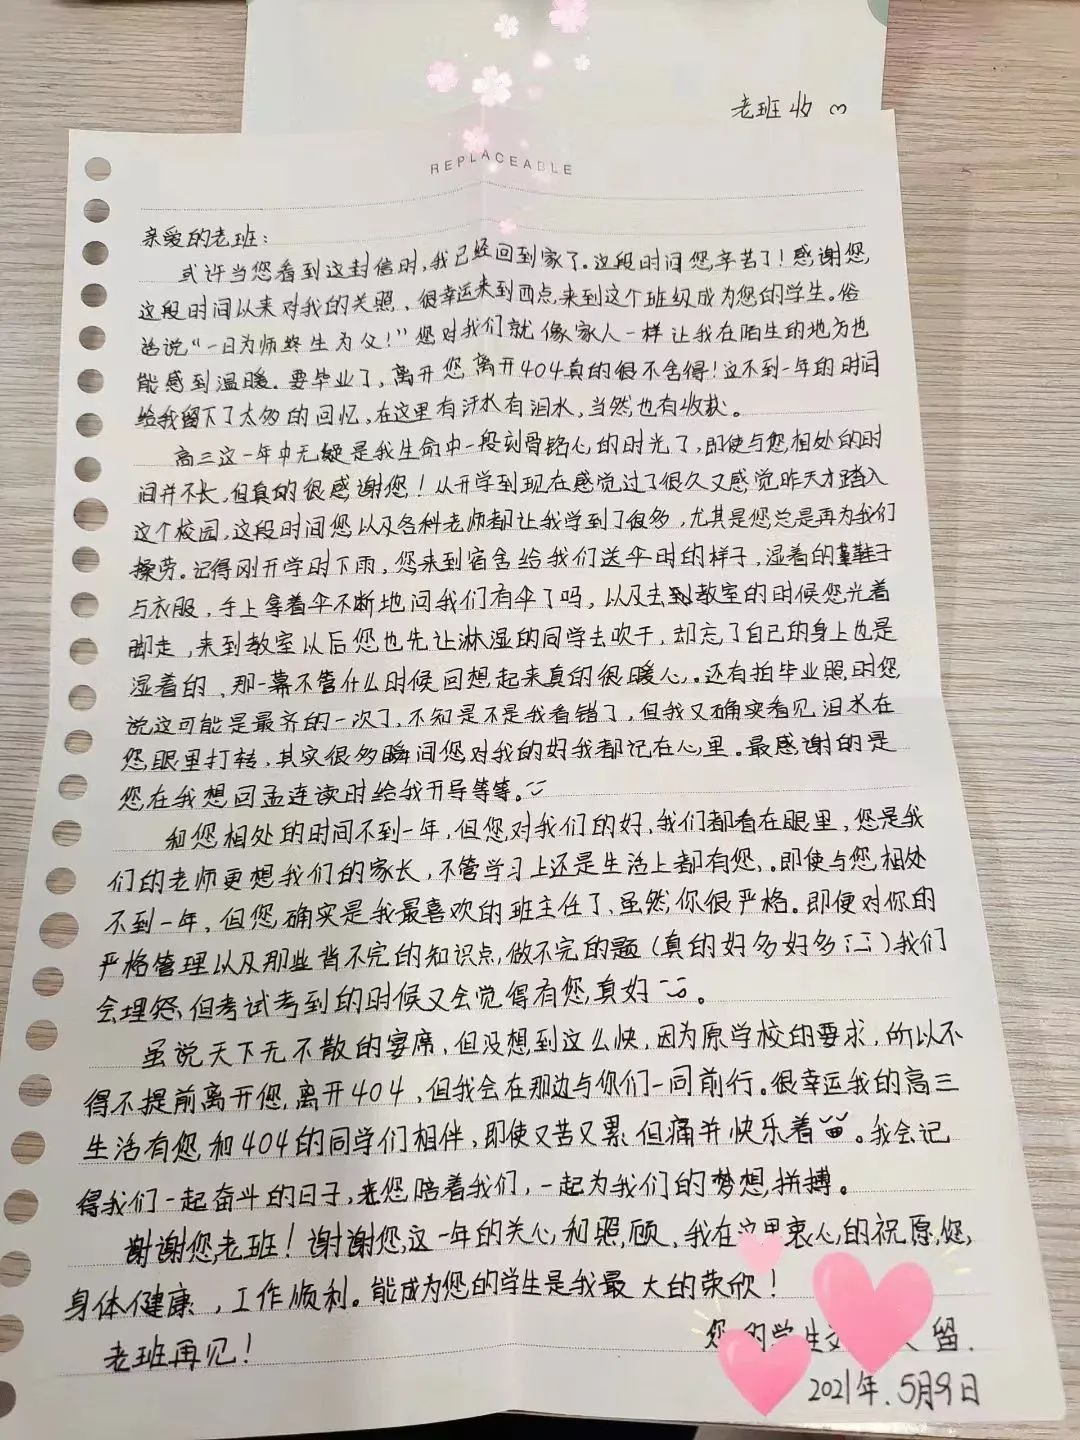 老班收
REPLACEABLE
亲爱的老班：
或许当您看到这封信时，我已经回到家了。这段时间您辛苦了！感谢您
这段时间以来对我的关照、很幸运来到西点，来到这个班级成为您的学生。俗
话说“一日为师终生为父！”您对我们就像家人一样让我在陌生的地方也
能感到温暖。要毕业了，离开您离开404真的很不舍得！这不到一年的时间
给我留下了太多的回忆，在这里有汗水有泪水，当然也有收获。
高三这一年中无疑是我生命中一段刻骨铭心的时光了，即使与您相处的时
间并不长，但真的很感谢您！从开学到现在感觉过了很久又感觉昨天才踏入
这个校园，这段时间您以及各科老师都让我学到了很多，尤其是您总是再为我们
操劳。记得刚开学时下雨，您来到宿舍给我们送伞时的样子，湿着的鞋子
与衣服，手上拿着伞不断地问我们有伞了吗，以及去到教室的时候您光着
脚走，来到教室以后您也先让淋湿的同学去吹干，却忘了自己的身上也是
湿着的、那一幕不管什么时候回想起来真的很暖心。还有拍毕业照时您
说这可能是最齐的一次了，不知是不是我看错了，但我又确实看见泪水在
您眼里打转，其实很多瞬间您对我的好我都记在心里。最感谢的是
您在我想回孟连读时给我开导等等。
和您相处的时间不到一年，但您对我们的好，我们都看在眼里，您是我
们的老师更想我们的家长，不管学习上还是生活上都有您、。即使与您相处
不到一年，但您确实是我最喜欢的班主任了、虽然你很严格。即便对你的
严格管理以及那些背不完的知识点，做不完的题（真的好多好多）我们
会埋怨、但考试考到的时候又会觉得有您真好。
虽说天下无不散的宴席，但没想到这么快，因为原学校的要求，所以不
得不提前离开您，离开404，但我会在那边与你们一同前行。很幸运我的高三
生活有您和404的同学们相伴，即使又苦又累但痛并快乐着。我会记
得我们一起奋斗的日子，您陪着我们，一起为我们的梦想拼搏。
谢谢您老班！谢谢您这一年的关心和照顾、我在这里衷心的祝愿您，
身体健康，工作顺利。能成为您的学生是我最大的荣欣！
老班再见！
您的学生 留.
2021年.5月9日